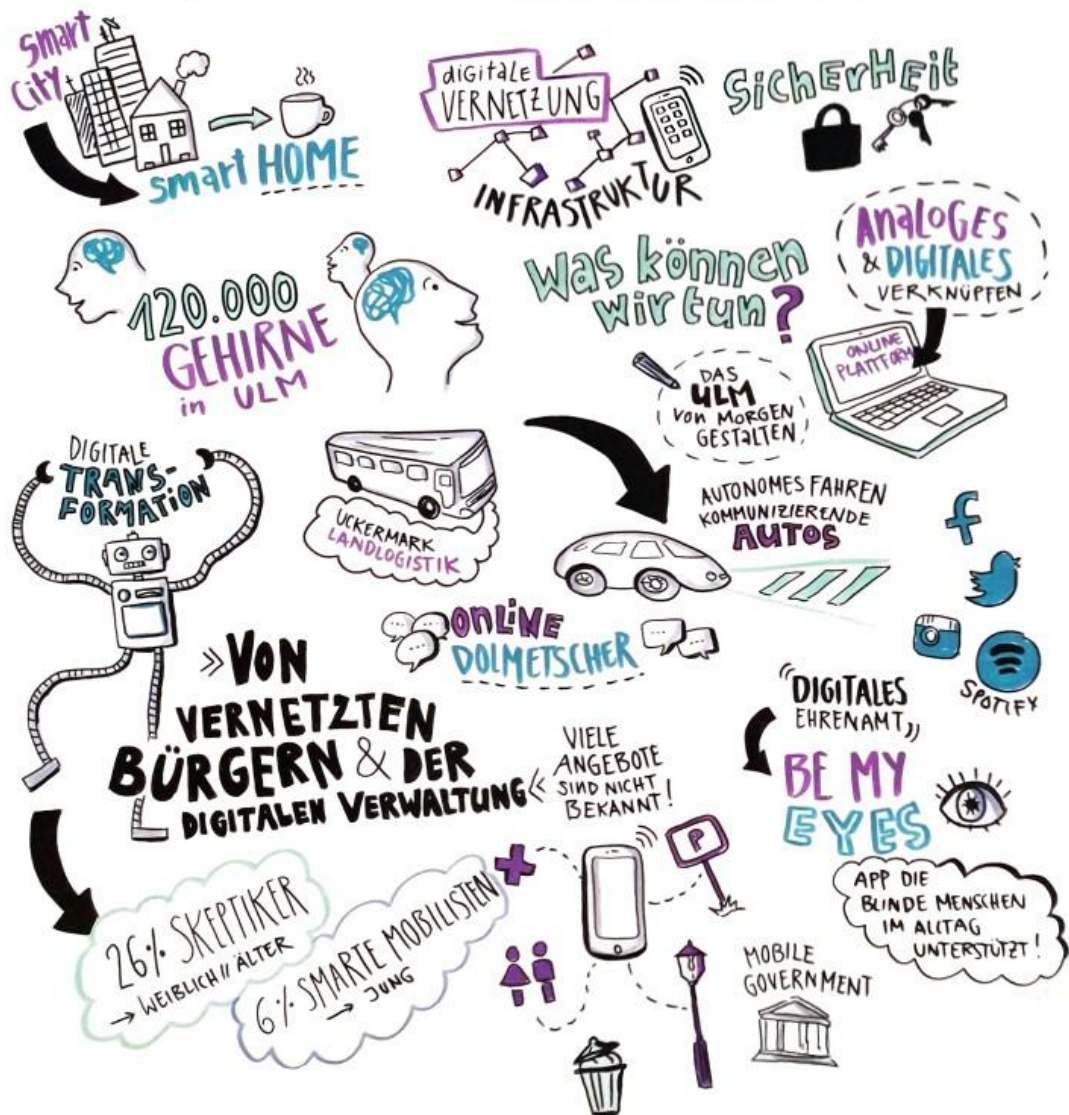 smart
City
smart HOME
digitale
VERNETZUNG
INFRASTRUKTUR
SicHErHEit
120.000
GEHIRNE
in ULM
Was können
wir tun?
ANALOGES
& DIGITALES
VERKNÜPFEN
ONLINE
PLATTFORM
DAS
ULM
VON MORGEN
GESTALTEN
DIGITALE
TRANS-
FORMATION
UCKERMARK
LANDLOGISTIK
AUTONOMES FAHREN
KOMMUNIZIERENDE
AUTOS
ONLINE
DOLMETSCHER
f
SPOTIFY
»VON
VERNETZTEN
BÜRGERN & DER
DIGITALEN VERWALTUNG«
VIELE
ANGEBOTE
SIND NICHT
BEKANNT!
"DIGITALES
EHRENAMT"
BE MY
EYES
APP DIE
BLINDE MENSCHEN
IM ALLTAG
UNTERSTÜTZT!
26% SKEPTIKER
→ WEIBLICH // ÄLTER
6% SMARTE MOBILISTEN
→ JUNG
P
MOBILE
GOVERNMENT